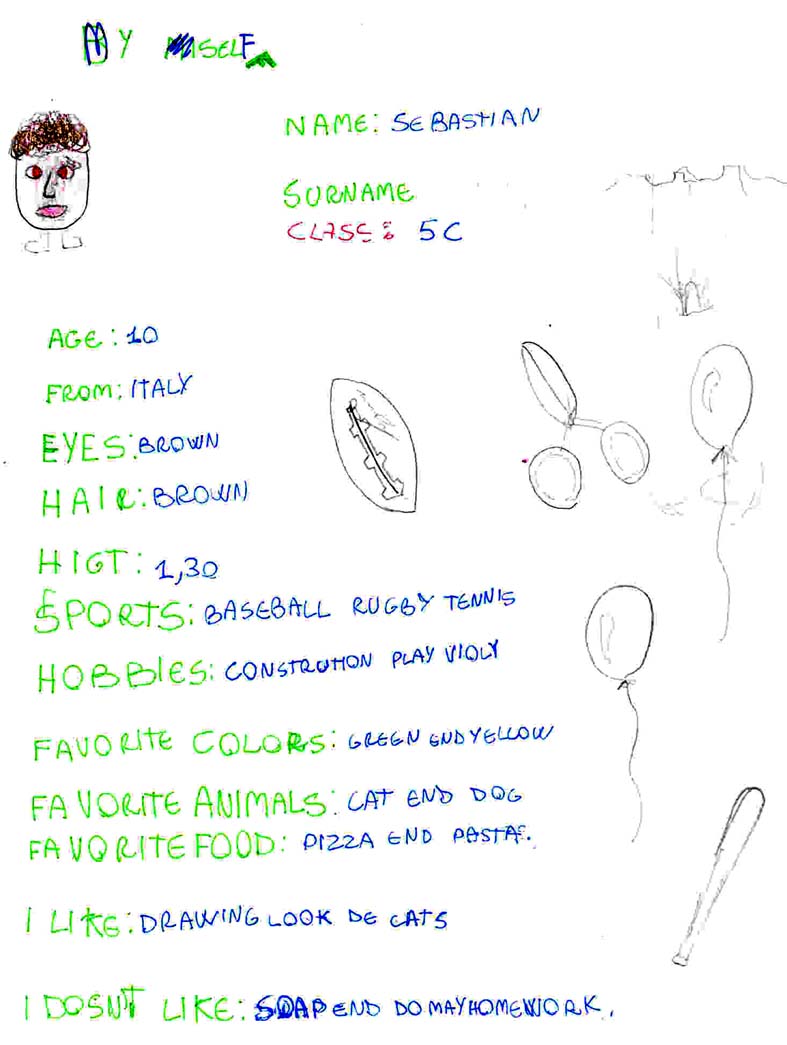 MY MISELF
NAME: SEBASTIAN
SURNAME
CLASS: 5C
AGE: 10
FROM: ITALY
EYES: BROWN
HAIR: BROWN
HIGT: 1,30
SPORTS: BASEBALL RUGBY TENNIS
HOBBIES: CONSTRUTION PLAY VIOLY
FAVORITE COLORS: GREEN END YELLOW
FAVORITE ANIMALS: CAT END DOG
FAVORITE FOOD: PIZZA END PASTA.
I LIKE: DRAWING LOOK DE CATS
I DOSN'T LIKE: SOAP END DO MAY HOMEWORK.